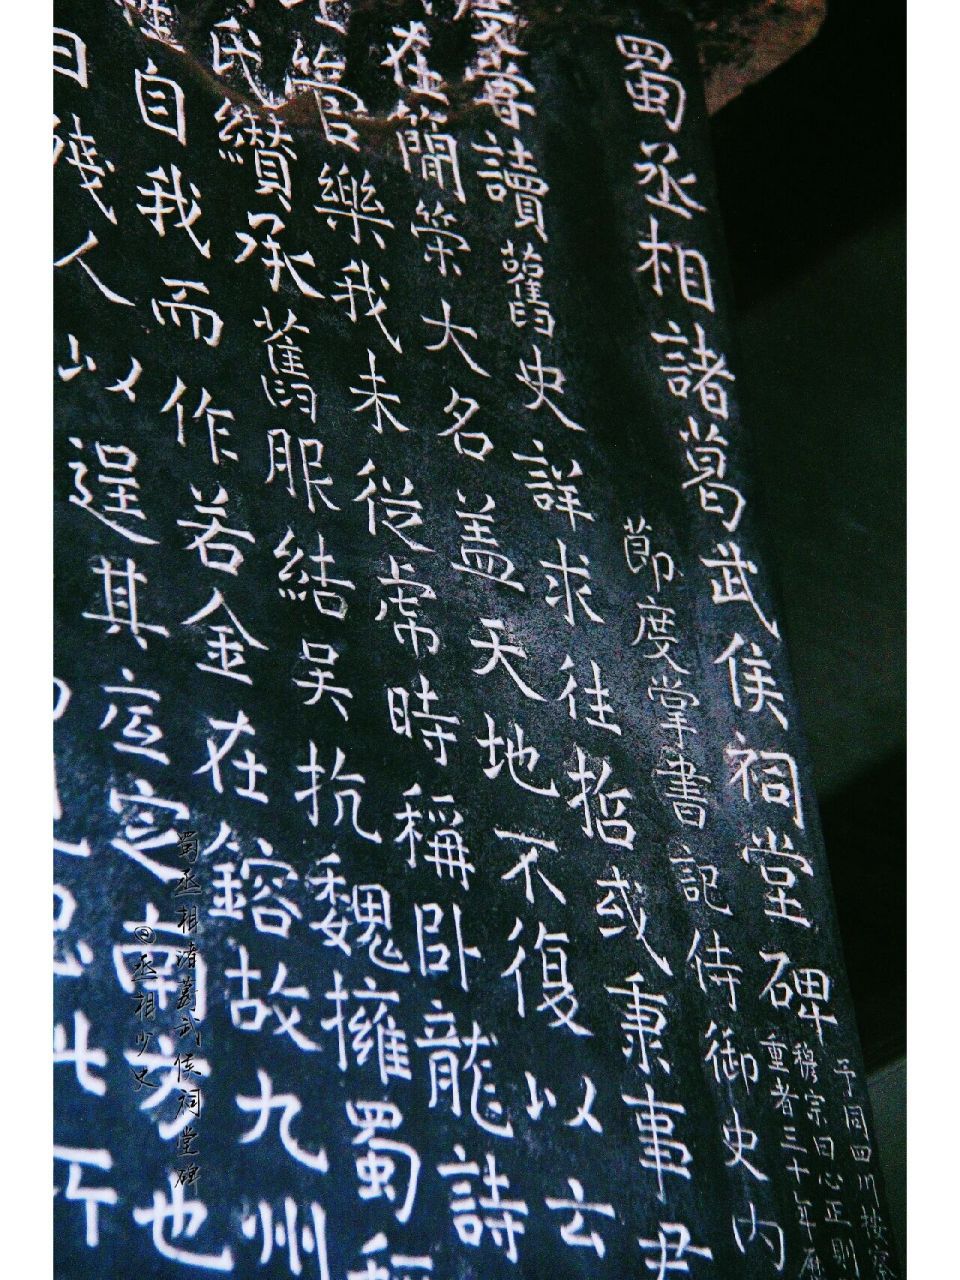 蜀丞相諸葛武侯祠堂碑
予同四川按察
穆宗曰心正則
重者三十年
節度掌書記侍御史內
嘗讀舊史詳求往哲或秉事
在簡策大名蓋天地不復以云
管樂我未從虖時稱卧龍詩
氏纘承舊服結吳抗魏擁蜀稱
自我而作若金在鎔故九州
殘人以逞其
定之南方也
蜀丞相諸葛武侯祠堂碑
丞相少史